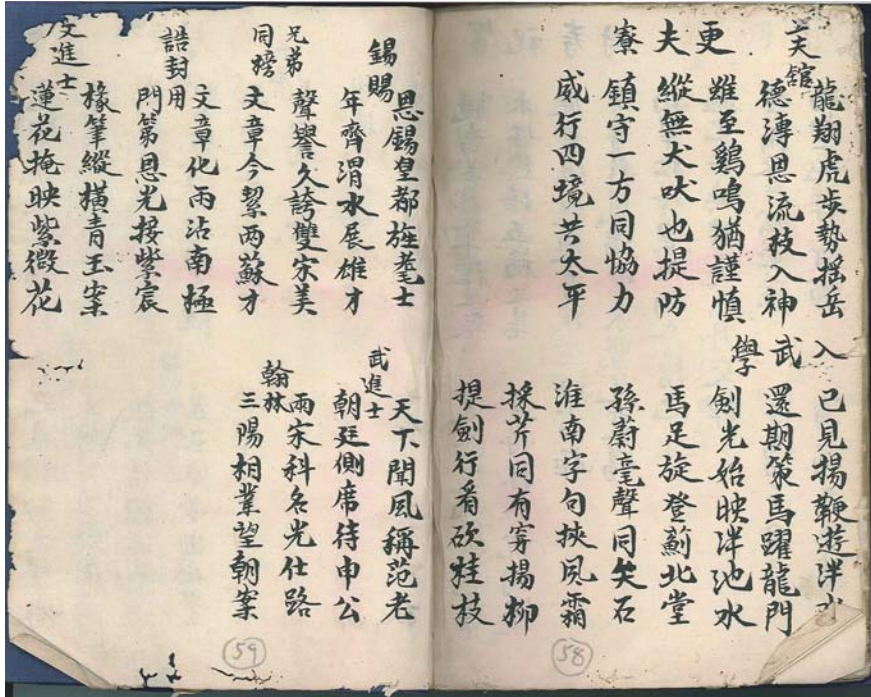 館
龍翔虎步勢搖岳
德溥恩流技入神
更夫寮
雖至鷄鳴猶謹慎
縱無犬吠也提防
鎮守一方同協力
威行四境共太平
入武學
已見揚鞭遊泮水
還期策馬躍龍門
劍光始映泮池水
馬足旋登薊北堂
孫蔚毫聲同矢石
淮南字句挾風霜
採芹同有穿揚柳
提劍行看砍桂枝
58
錫賜
恩錫皇都旌耄士
年齊渭水展雄才
兄弟同榜
聲譽久誇雙宋美
文章今絜两蘇才
誥封用
文章化雨沾南極
門第恩光接紫宸
文進士
椽筆縱橫青玉案
蓮花掩映紫微花
武進士
天下聞風稱范老
朝廷側席待申公
翰林
兩宋科名光仕路
三陽相業望朝案
59